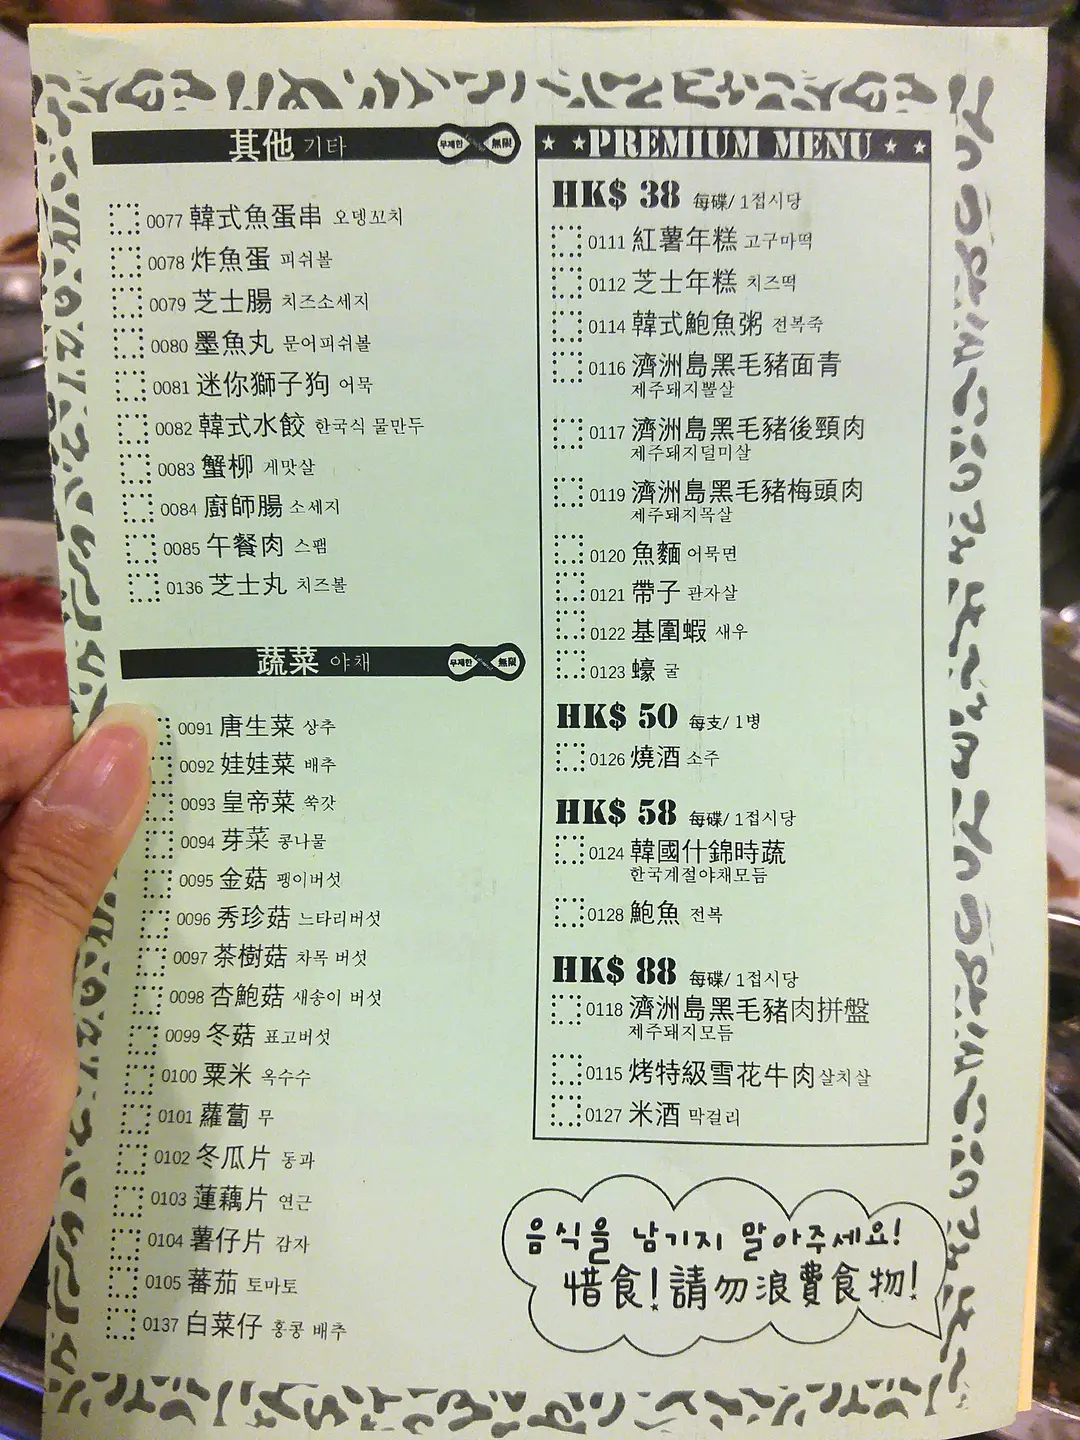 其他 기타 무제한 無限
0077 韓式魚蛋串 오뎅꼬치
0078 炸魚蛋 피쉬볼
0079 芝士腸 치즈소세지
0080 墨魚丸 문어피쉬볼
0081 迷你獅子狗 어묵
0082 韓式水餃 한국식 물만두
0083 蟹柳 게맛살
0084 廚師腸 소세지
0085 午餐肉 스팸
0136 芝士丸 치즈볼
蔬菜 야채 무제한 無限
0091 唐生菜 상추
0092 娃娃菜 배추
0093 皇帝菜 쑥갓
0094 芽菜 콩나물
0095 金菇 팽이버섯
0096 秀珍菇 느타리버섯
0097 茶樹菇 차목 버섯
0098 杏鮑菇 새송이 버섯
0099 冬菇 표고버섯
0100 粟米 옥수수
0101 蘿蔔 무
0102 冬瓜片 동과
0103 蓮藕片 연근
0104 薯仔片 감자
0105 蕃茄 토마토
0137 白菜仔 홍콩 배추
PREMIUM MENU
HK$ 38 每碟/ 1접시당
0111 紅薯年糕 고구마떡
0112 芝士年糕 치즈떡
0114 韓式鮑魚粥 전복죽
0116 濟洲島黑毛豬面青
제주돼지뽈살
0117 濟洲島黑毛豬後頸肉
제주돼지덜미살
0119 濟洲島黑毛豬梅頭肉
제주돼지목살
0120 魚麵 어묵면
0121 帶子 관자살
0122 基圍蝦 새우
0123 蠔 굴
HK$ 50 每支/ 1병
0126 燒酒 소주
HK$ 58 每碟/ 1접시당
0124 韓國什錦時蔬
한국계절야채모듬
0128 鮑魚 전복
HK$ 88 每碟/ 1접시당
0118 濟洲島黑毛豬肉拼盤
제주돼지모듬
0115 烤特級雪花牛肉 살치살
0127 米酒 막걸리
음식을 남기지 말아주세요!
惜食!請勿浪費食物!